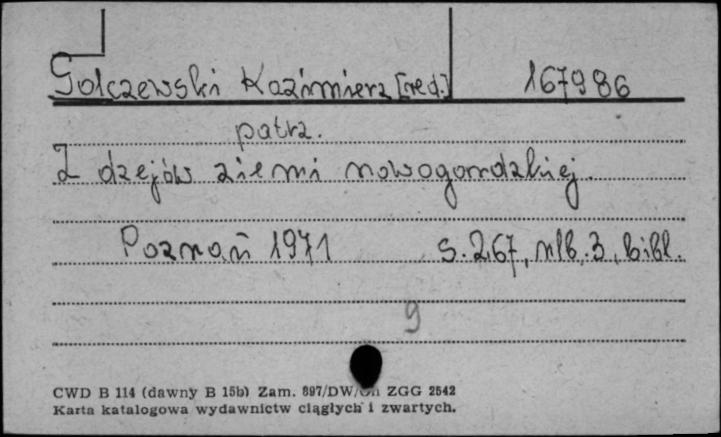 Golczewski Kazimierz [red.] 167986
patrz.
Z dziejów ziemi nowogardzkiej.
Poznań 1971 s. 267, nlb. 3, bibl.
9
CWD B 114 (dawny B 15b) Zam. 897/DW/ ZGG 2542
Karta katalogowa wydawnictw ciągłych i zwartych.